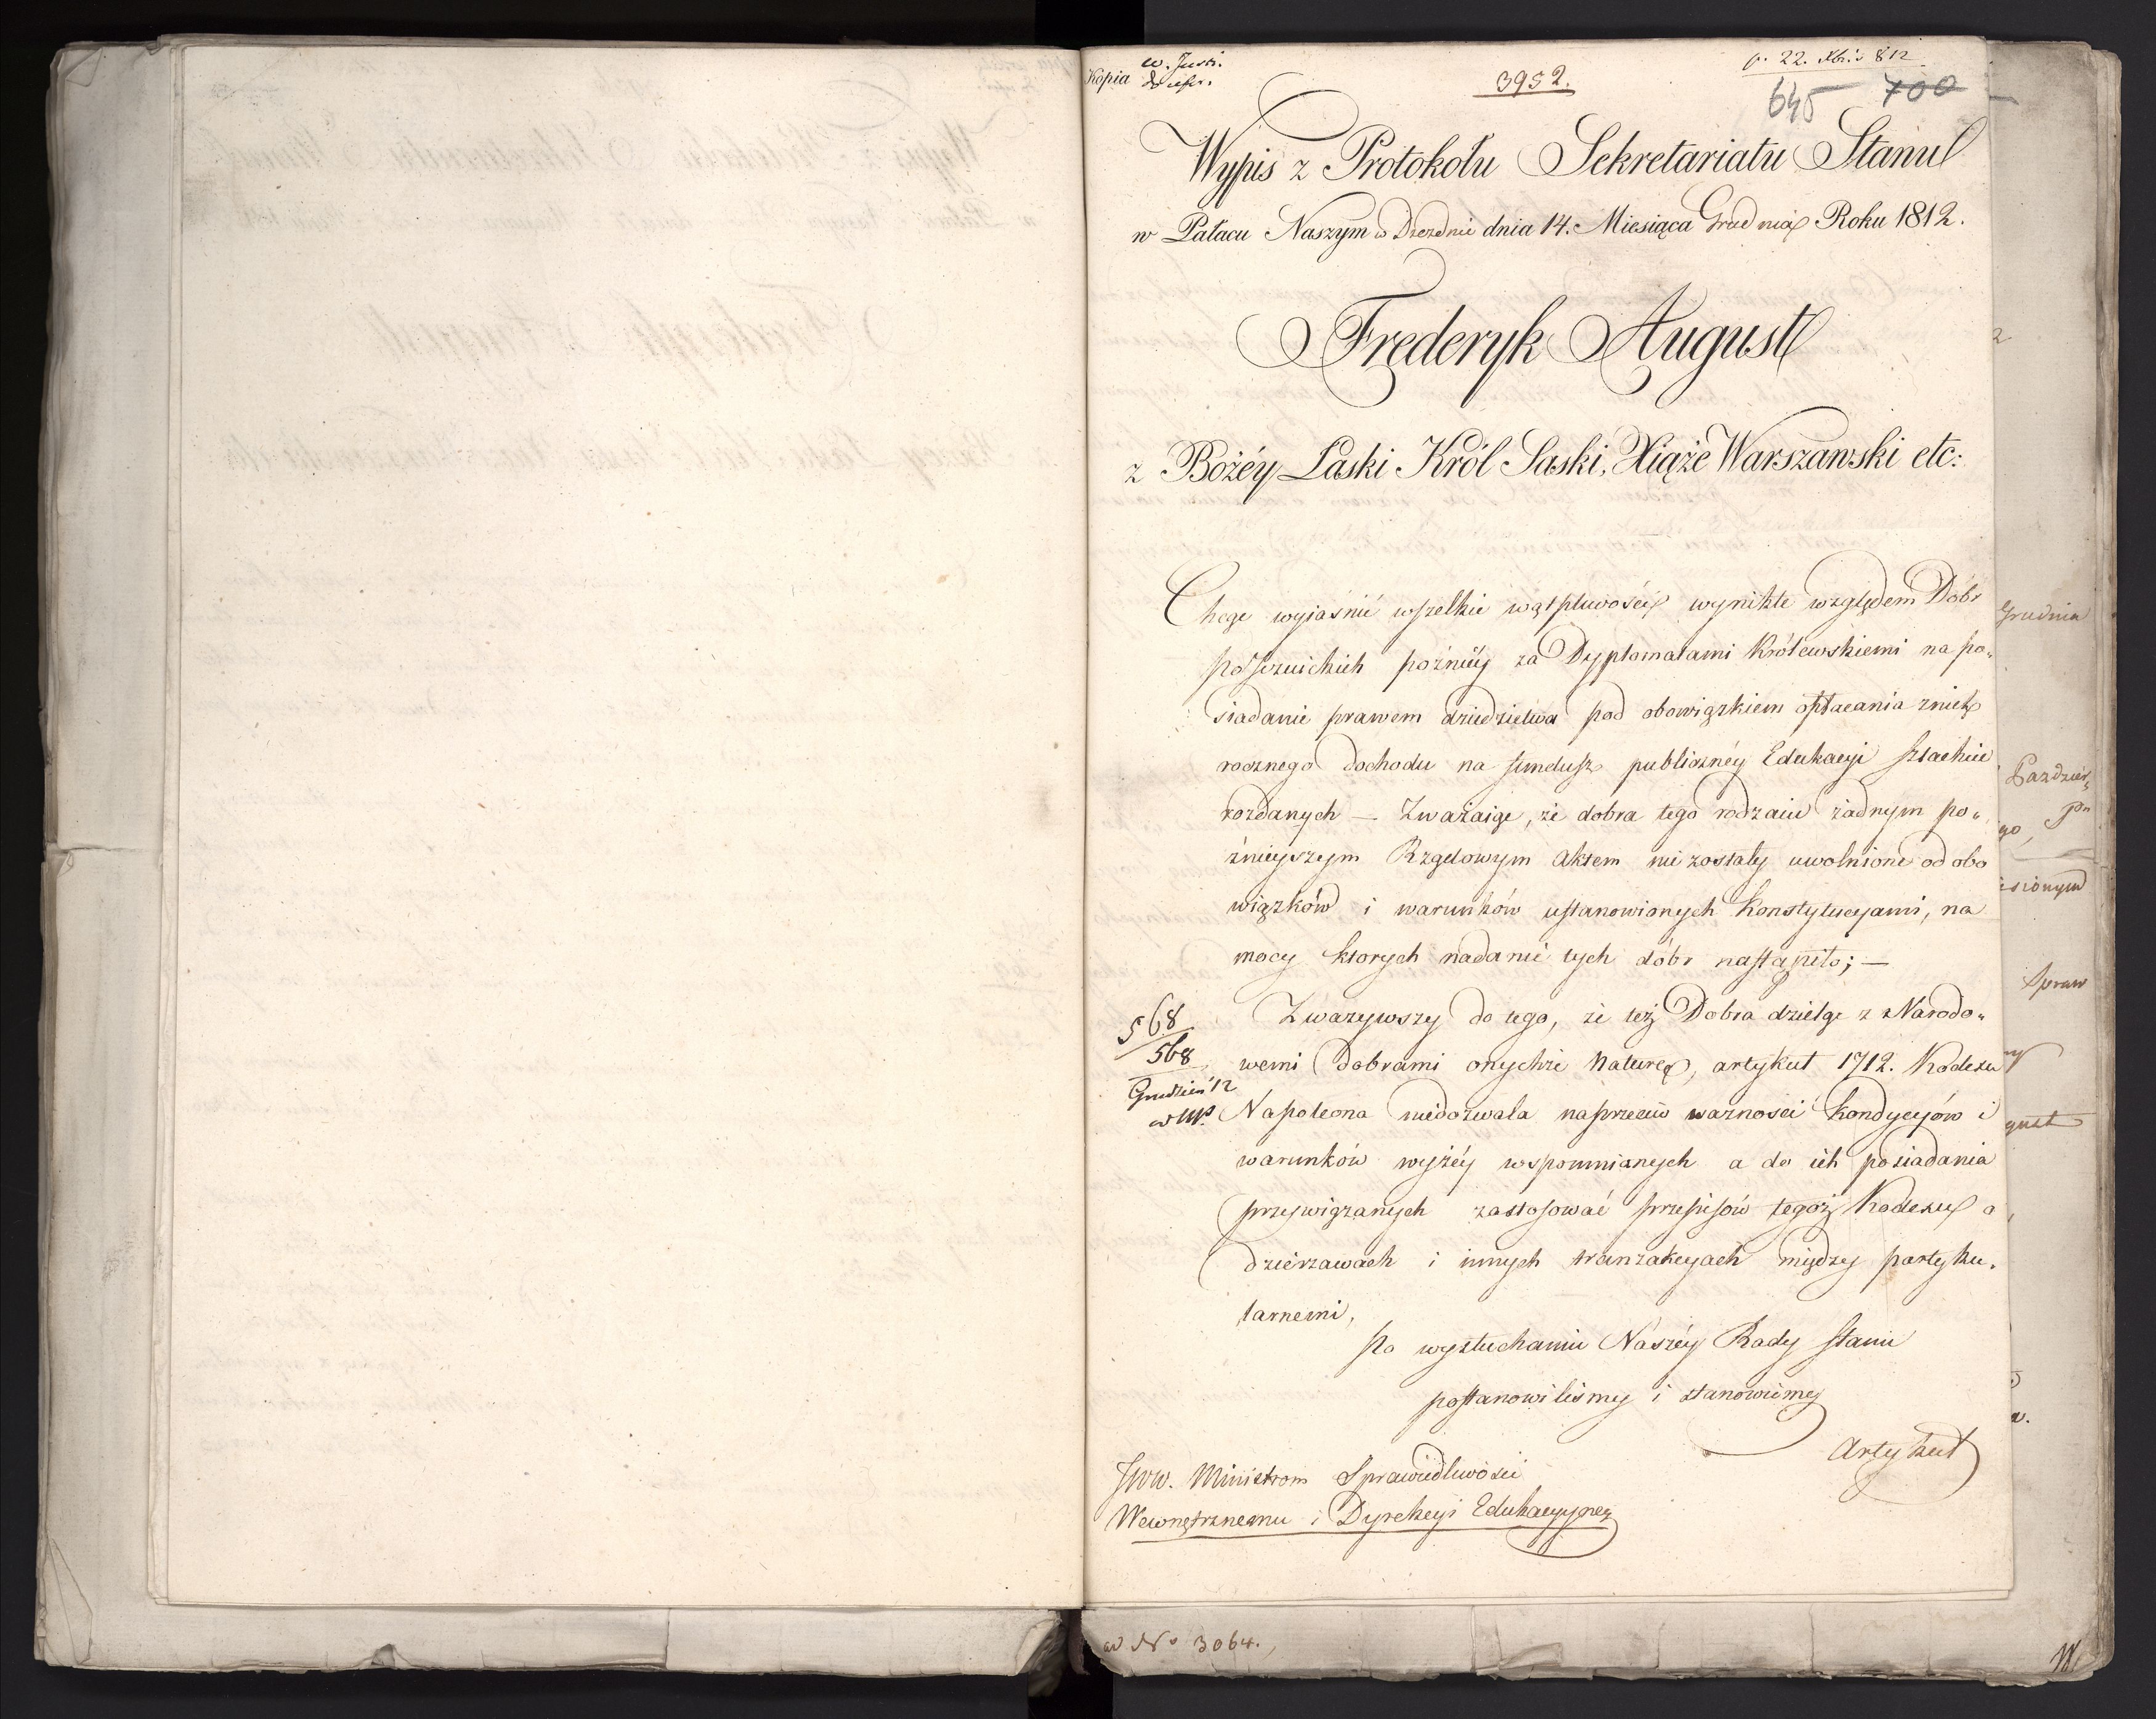 Kopia
w. Just.
3952.
p. 22. Xbris 812
645 700
Wypis z Protokołu Sekretariatu Stanu
w Pałacu Naszym w Dreznie dnia 14. Miesiąca Grudnia Roku 1812.
Frederyk August
z Bożéy Łaski Król Saski, Xiąże Warszawski etc:
Chcąc wyiaśnić wszelkie wątpliwości wynikłe względem Dóbr
poJezuickich poźniéy za Dyplomatami Królewskiemi na po„
siadanie prawem dziedzictwa pod obowiązkiem opłacania znich
rocznego dochodu na fundusz publicznéy Edukacyi szlachcie
rozdanych — Zważaiąc, że dobra tego rodzaiu żadnym po„
źnieyszym Rządowym aktem nie zostały uwolnione od obo
wiązków i warunków ustanowionych Konstytucyami, na
mocy ktorych nadanie tych dóbr nastąpiło; —
Zważywszy do tego, że też Dobra dzieląc z Narodo„
wemi Dobrami onychże naturę, artykuł 1712. Kodexu
Napoleona niedozwala naprzeciw ważności kondycyów i
warunków wyżéy wspomnianych a do ich posiadania
przywiązanych zastosować przepisów tegoż Kodexu o
dzierzawach i innych tranzakcyach między partyku„
larnemi,
Po wysłuchaniu Naszéy Rady Stanu
postanowiliśmy i stanowiemy
Artykuł
568
568
Grudzień 12
JWW. Ministrom Sprawiedliwości
Wewnętrznemu i Dyrekcyi Edukacyyney
ad No 3064.
Grudnia
Pazdzier„
go,
sionym
Spraw
gust